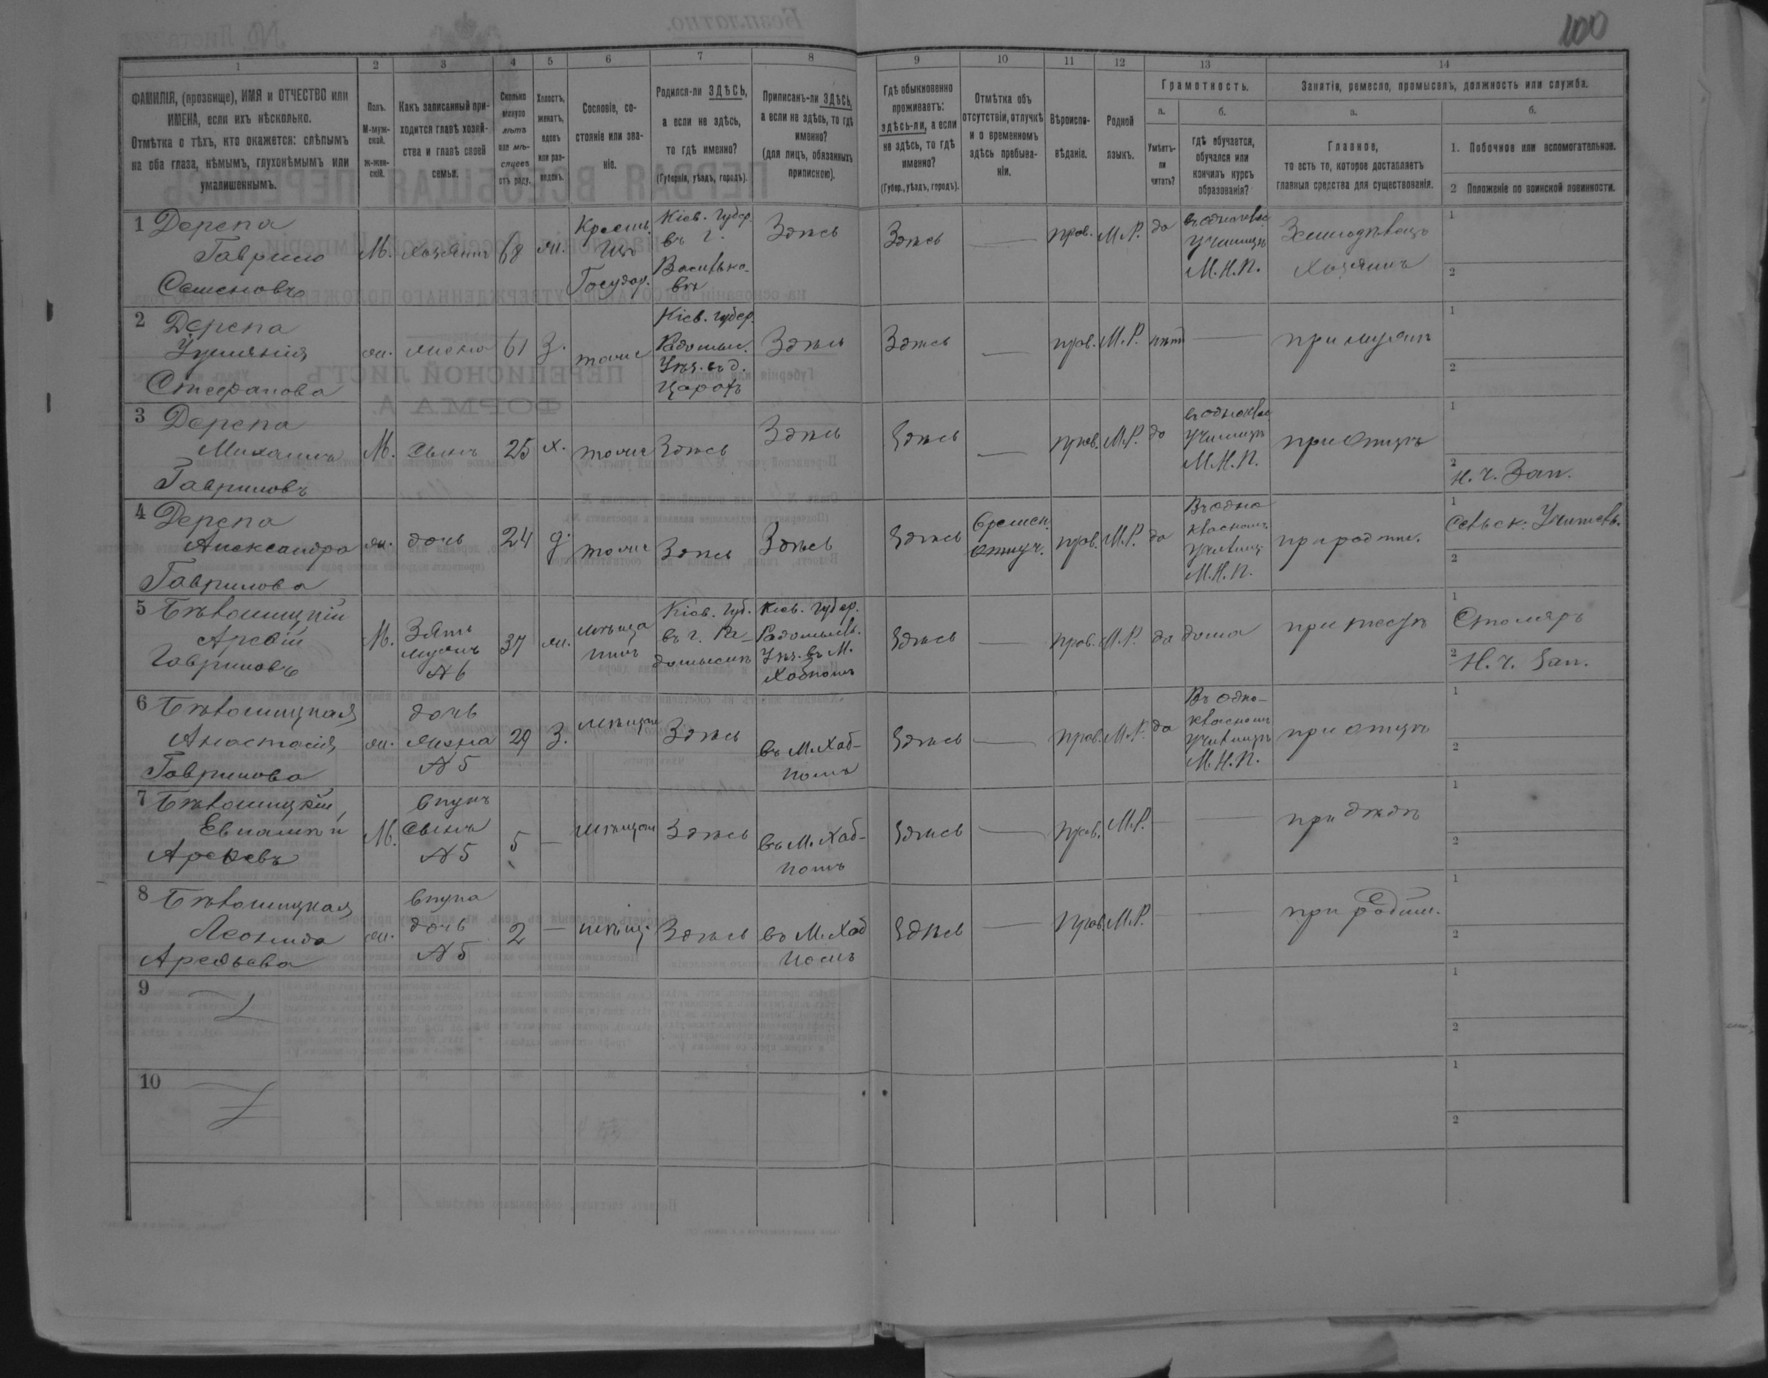 100
1 2 3 4 5 6 7 8 9 10 11 12 13 14
ФАМИЛІЯ, (прозвище), ИМЯ и ОТЧЕСТВО или
ИМЕНА, если ихъ нѣсколько.
Отмѣтка о тѣхъ, кто окажется: слѣпымъ
на оба глаза, нѣмымъ, глухонѣмымъ или
умалишеннымъ.
Полъ.
М-мужской.
Ж-женскій.
Какъ записанный приходится главѣ хозяйства и главѣ своей семьи.
Сколько минуло лѣтъ или мѣсяцевъ отъ роду.
Холостъ, женатъ, вдовъ или разведенъ.
Сословіе, состояніе или званіе.
Родился-ли ЗДѢСЬ,
а если не здѣсь,
то гдѣ именно?
(Губернія, уѣздъ, городъ).
Приписанъ-ли ЗДѢСЬ,
а если не здѣсь, то гдѣ
именно?
(для лицъ, обязанныхъ
припискою).
Гдѣ обыкновенно
проживаетъ:
здѣсь-ли, а если
не здѣсь, то гдѣ
именно?
(Губер., уѣздъ, городъ).
Отмѣтка объ
отсутствіи, отлучкѣ
и о временномъ
здѣсь пребываніи.
Вѣроисповѣданіе.
Родной
языкъ.
Грамотность.
а.
б.
Умѣетъ-ли
читать?
гдѣ обучается,
обучался или
кончилъ курсъ
образованія?
Занятія, ремесло, промыселъ, должность или служба.
а.
б.
Главное,
то есть то, которое доставляетъ
главныя средства для существованія.
1. Побочное или вспомогательное.
2 Положеніе по воинской повинности.
1 Дерепа
Гаврило
Семеновъ
М. хозяинъ 68 ж.
Крестьян.
изъ
Государ.
Кіев. Губер.
въ г.
Васильковъ
Здѣсь
Здѣсь
прав. М.Р. да
въ однокл.
Училищѣ
М.Н.П.
Земледѣлецъ
Хозяинъ
1
2
2 Дерепа
Степанова
ж. жена 61 З. тоже
Кіев. губер.
Радомыс.
Уѣз. въ д.
Здѣсь
Здѣсь
прав. М.Р. нѣтъ
при мужѣ
1
2
3 Дерепа
Михаилъ
Гавриловъ
М. сынъ 25 х. тоже Здѣсь
Здѣсь
Здѣсь
прав. М.Р. да
въ однокл.
Училищѣ
М.Н.П.
при отцѣ
1
2
Н. ч. Зап.
4 Дерепа
Александра
Гаврилова
ж. дочь 24 д. тоже Здѣсь
Здѣсь
Здѣсь
Времен.
отлуч.
прав. М.Р. да
Въ одноклассномъ
Училищ.
М.Н.П.
при родит.
1
Сельск. Учитель.
2
5 Бѣлошицкій
Гавриловъ
М.
Зять
мужъ
№ 6
37 ж.
Кіев. Губ.
въ г. Радомыслѣ
Кіев. Губер.
Радомысл.
Уѣз. въ М.
Хабномъ
Здѣсь
прав. М.Р. да дома
при тестѣ
1
Столяръ
2
Н. ч. Зап.
6 Бѣлошицкая
Анастасія
Гаврилова
ж.
дочь
жена
№ 5
29 З. мѣщан. Здѣсь
въ М. Хабномъ
Здѣсь
прав. М.Р. да
Въ одноклассномъ
Училищѣ
М.Н.П.
при отцѣ
1
2
7 Бѣлошицкій
Арсѣевъ
М.
внукъ
сынъ
№ 5
5 мѣщан. Здѣсь
въ М. Хабномъ
Здѣсь
прав. М.Р.
при дѣдѣ
1
2
8 Бѣлошицкая
Леонида
ж.
внука
дочь
№ 5
2 мѣщ. Здѣсь
въ М. Хабномъ
Здѣсь
Прав. М.Р.
при родит.
1
2
9
1
2
10
1
2